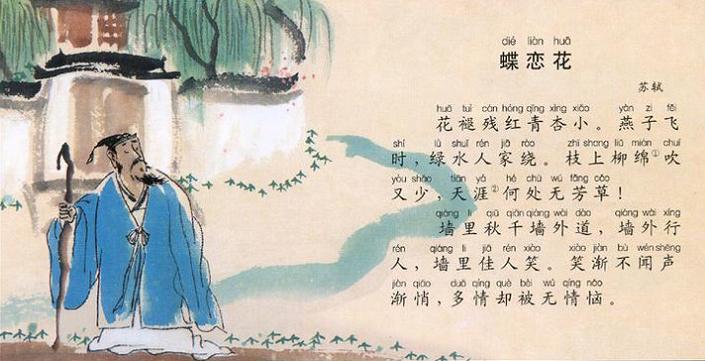 dié liàn huā
蝶恋花
苏轼
huā tuì cán hóng qīng xìng xiǎo yàn zi fēi
花褪残红青杏小。燕子飞
shí lǜ shuǐ rén jiā rào zhī shang liǔ mián chuī
时,绿水人家绕。枝上柳绵①吹
yòu shǎo tiān yá hé chù wú fāng cǎo
又少,天涯②何处无芳草!
qiáng lǐ qiū qiān qiáng wài dào qiáng wài xíng
墙里秋千墙外道,墙外行
rén qiáng lǐ jiā rén xiào xiào jiàn bù wén shēng
人,墙里佳人笑。笑渐不闻声
jiàn qiǎo duō qíng què bèi wú qíng nǎo
渐悄,多情却被无情恼。